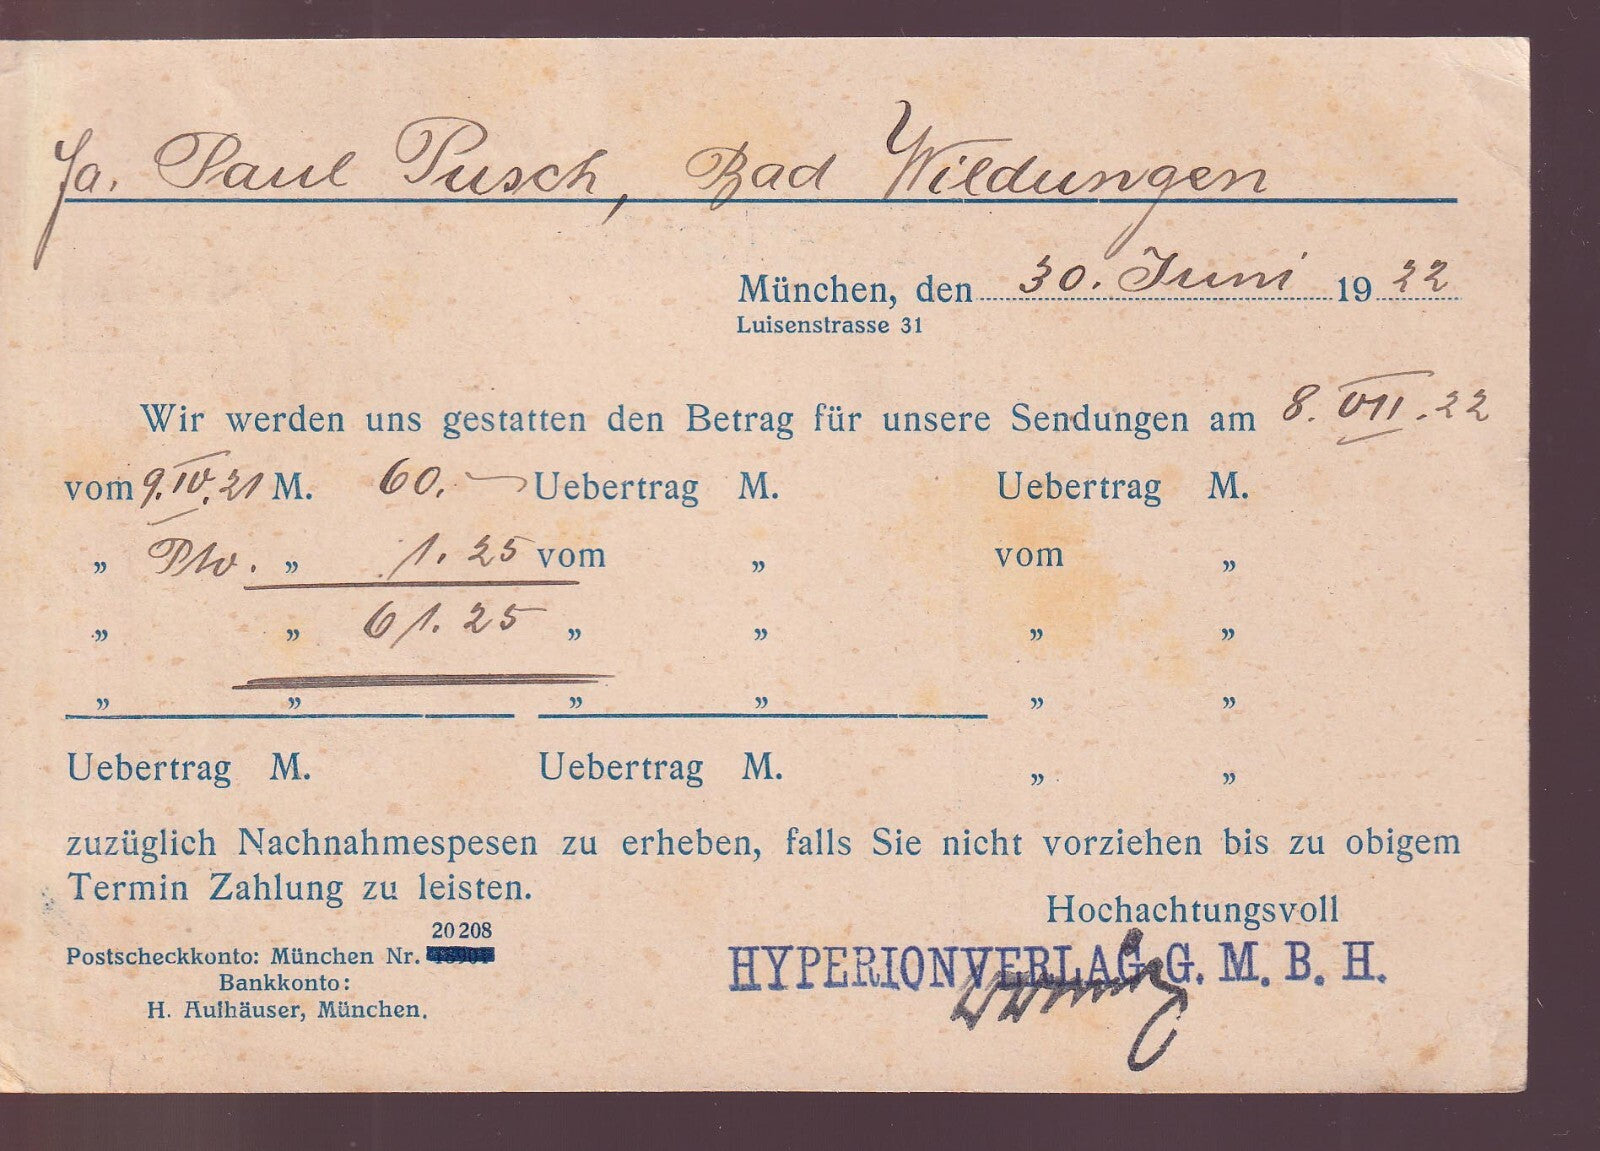 Fa. Paul Pusch, Bad Wildungen
München, den 30. Juni 1922
Luisenstrasse 31
Wir werden uns gestatten den Betrag für unsere Sendungen am 8. VII. 22
vom 9. IV. 21 M. 60. — Uebertrag M. Uebertrag M.
„ Pto. „ 1. 25 vom „ vom „
„ „ 61. 25 „ „ „ „
„ „ „ „ „ „
Uebertrag M. Uebertrag M. „ „
zuzüglich Nachnahmespesen zu erheben, falls Sie nicht vorziehen bis zu obigem
Termin Zahlung zu leisten.
Hochachtungsvoll
20 208
Postscheckkonto: München Nr.
HYPERIONVERLAG G. M. B. H.
Bankkonto:
H. Aufhäuser, München.